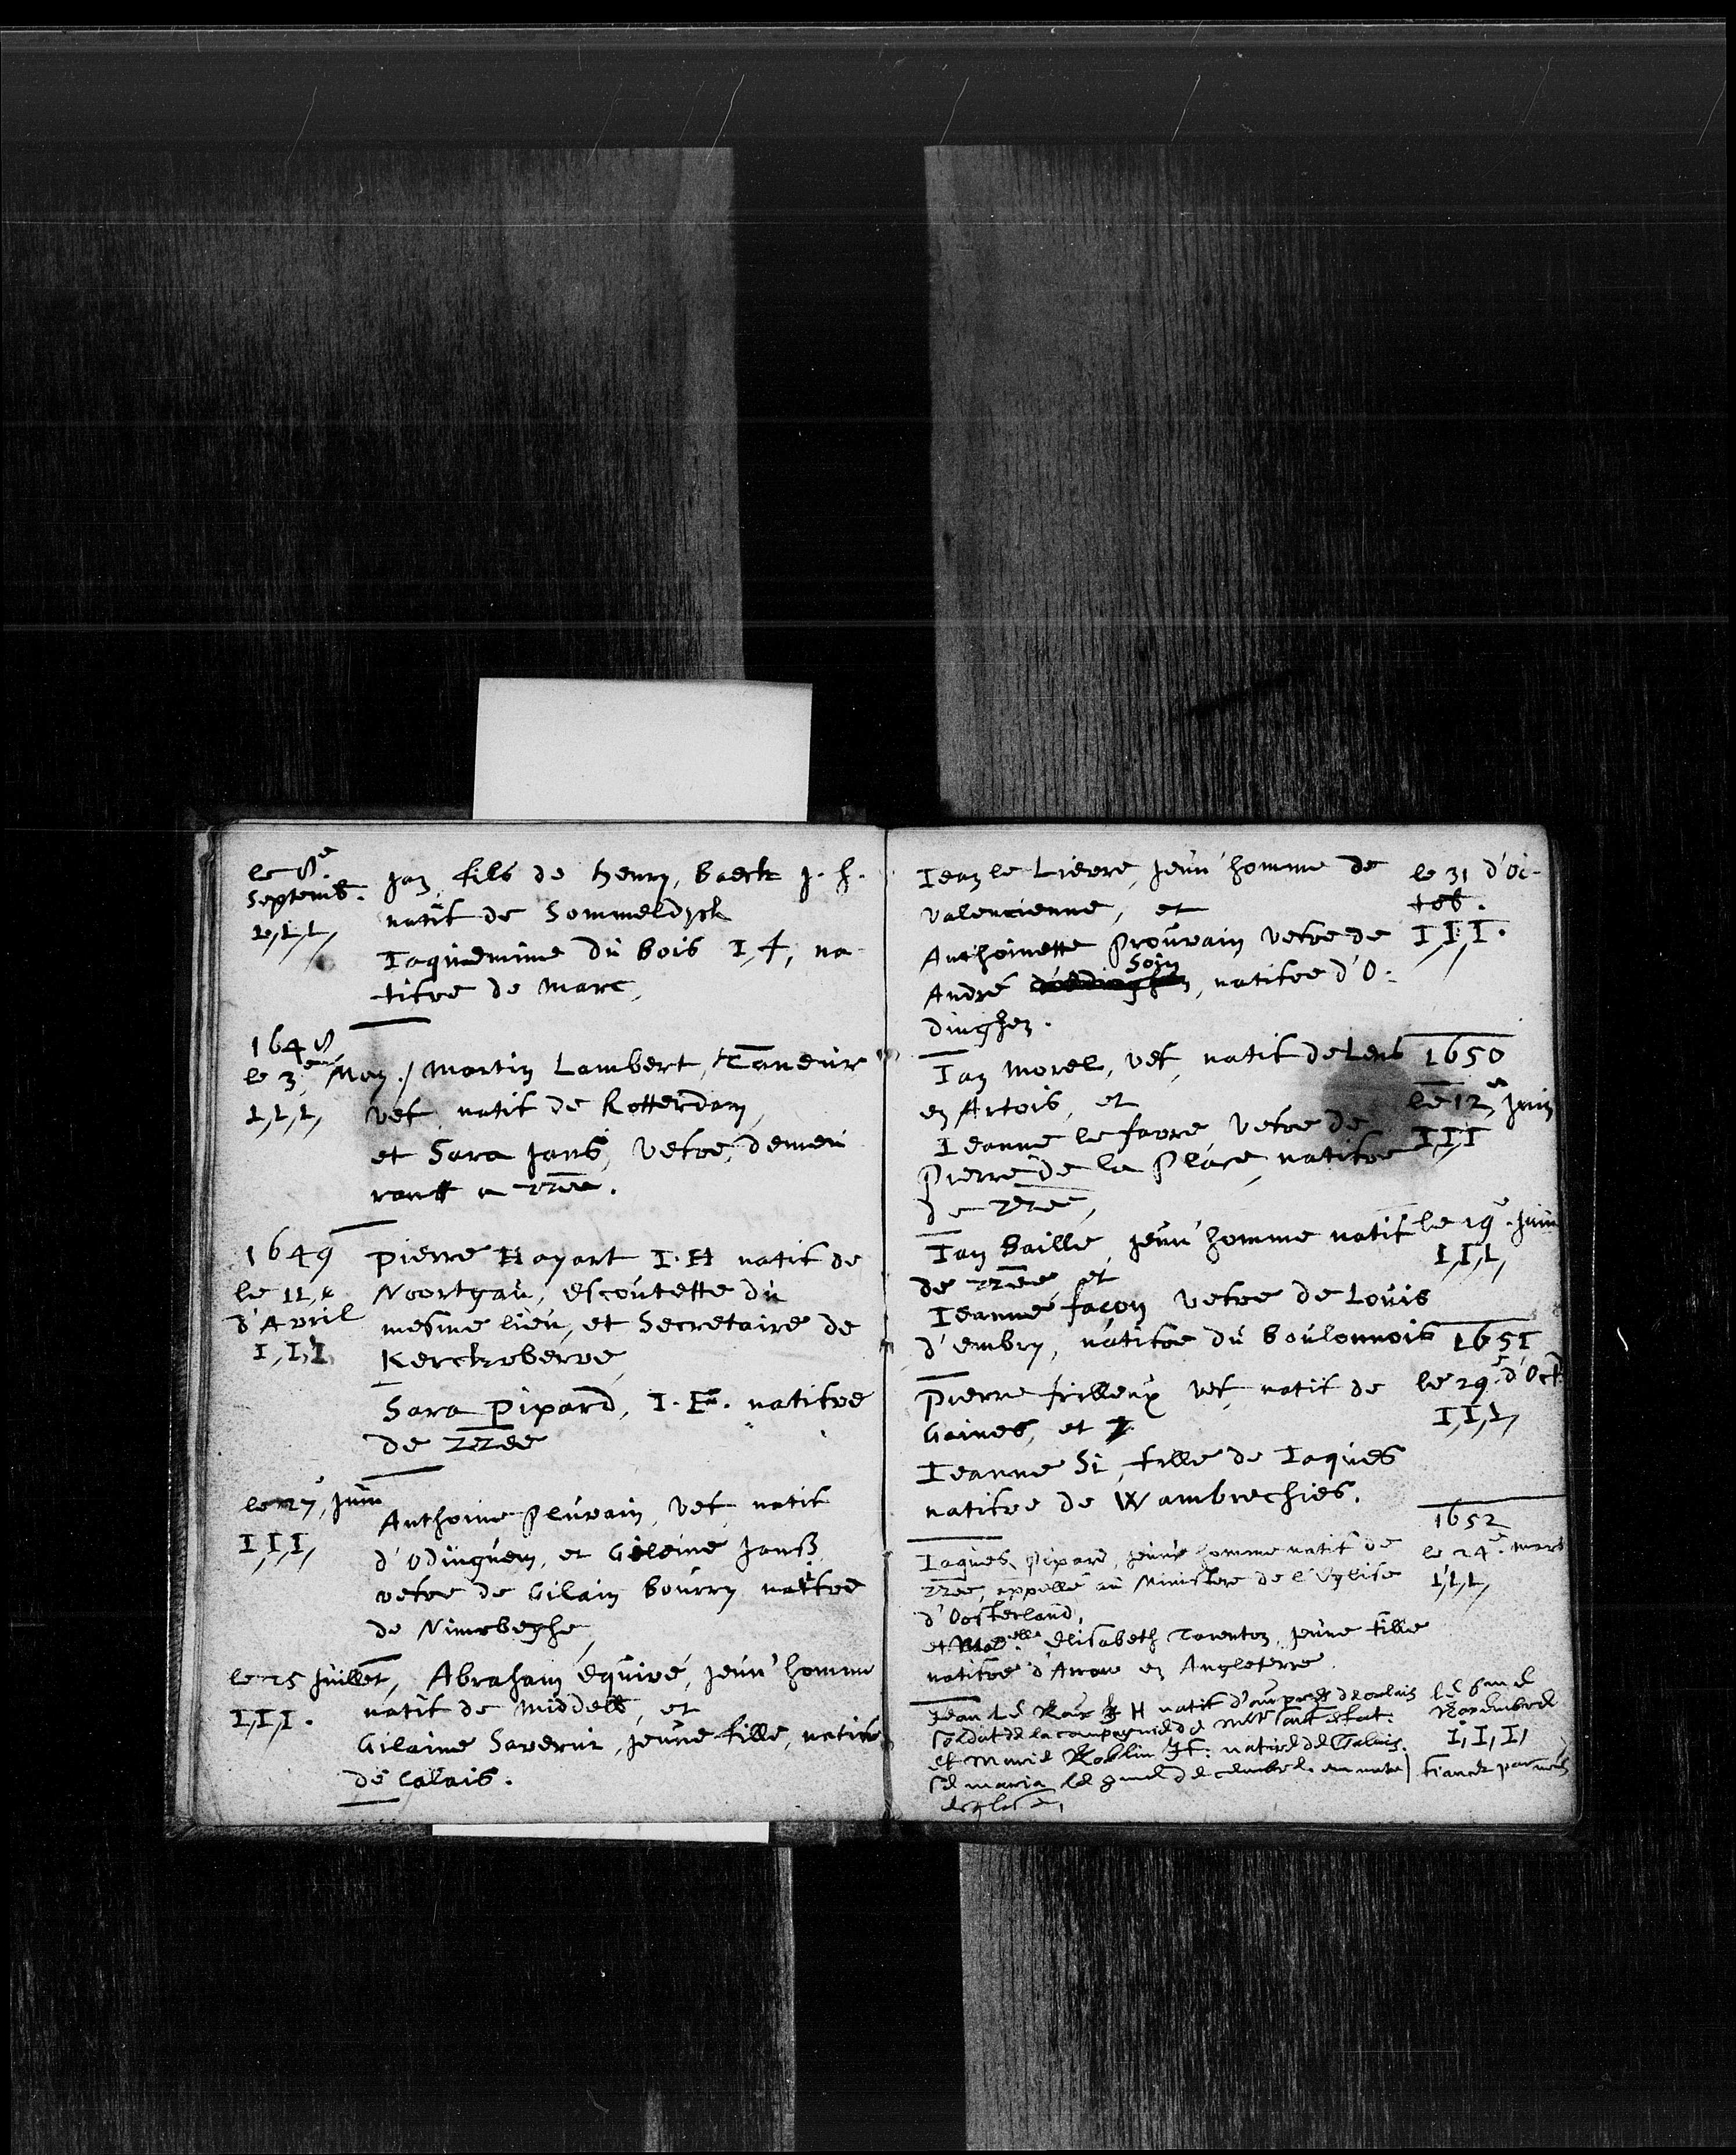 le 8e
Septemb.
I,I,I,
Jan fils de Henry, baeck J. h.
natif de Sommeldyck
Jaquemine du bois I, f, na-
tifve de Marc,
1648
le 3e May
I,I,I,
Martin Lambert, Taneur
vef natif de Rotterdam,
et Sara Jans, vefve, demeu
rantt a zzee.
1649
le 11,e
d'Avril
I,I,I,
Pierre Hayart I. H natif de
Noortgau, escoutette du
mesme lieu, et Secretaire de
Kerckwerve,
Sara Pipard, I. F. natifve
de zzee
le 27, Juin
I,I,I,
Anthoine Pluvain, vef natif
d'Odinguem, et Gileine Janss
vefve de Gilain bourry natifve
de Nimebeghe,
le 25 Juillet,
I,I,I.
Abraham équiré, jeun' homme
natif de Middelb, et
Gilaine Saverui, jeune fille, natifve
de Calais.
Iean le Lievre, jeun' homme de
Valencienne, et
Anthoinette Prouvain vefve de
Soin
André, natifve d'O-
dinghen.
le 31 d'Oc-
tob.
I,I,I.
Ian Morel, vef, natif de Lens
en Artois, et
Ieanne le favre, vefve de
Pierre de la Place, natifve
de zzee,
1650
le 12,e Juin
I,I,I
Ian baille, jeun' homme natif
de zzee et
Ieanne façon vefve de Louis
d'embry, natifve du boulonnois
le 19e. Juin
I,I,I,
Pierre frilleux vef, natif de
Gaines, et
Ieanne Si, fille de Iaques
natifve de Wambrechies.
1651
le 29e d'Oct
I,I,I,
Iaques Pipard, jeune homme natif de
zzee, appellé au Ministere de l'Eglise
d'Oosterland,
et Madelle Elisabeth Tarenton, jeune fille
natifve d'Arrow en Angleterre.
1652
le 24e. Mars
I,I,I,
Jean Le Roux J H natif d'aupres de Calais
soldat de la compagnie de Mr
et Marie Roblin J f: native de Calais.
se maria le de decembre en notre
eglise,
le 6me de
Novembre
I, I, I,
fiancez par